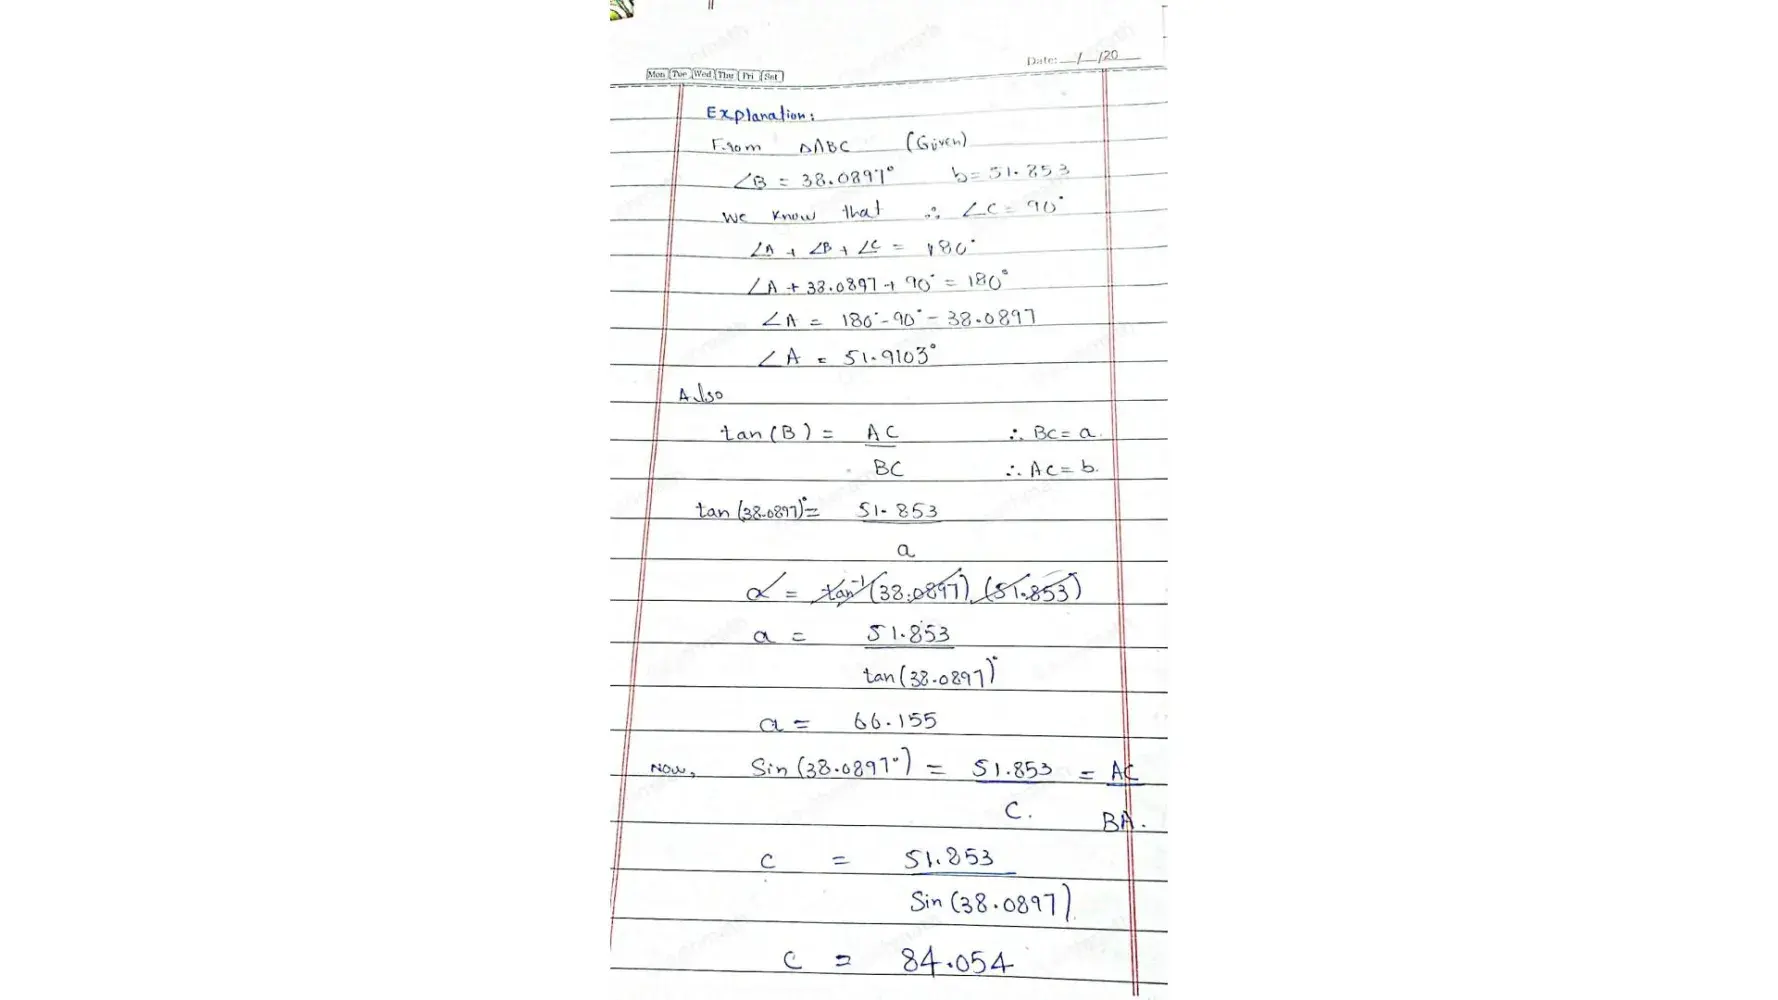 Date: __/__/20__
Mon Tue Wed Thu Fri Sat
Explanation:
From ΔABC (Given)
∠B = 38.0897° b = 51.853
We know that ∴ ∠C = 90°
∠A + ∠B + ∠C = 180°
∠A + 38.0897 + 90° = 180°
∠A = 180° - 90° - 38.0897
∠A = 51.9103°
Also
tan(B) = AC ∴ BC = a.
BC ∴ AC = b.
tan(38.0897)° = 51.853
a
a = tan⁻¹(38.0897) (51.853)
a = 51.853
tan(38.0897)°
a = 66.155
Now, Sin(38.0897°) = 51.853 = AC
C. BA.
c = 51.853
Sin(38.0897).
c = 84.054